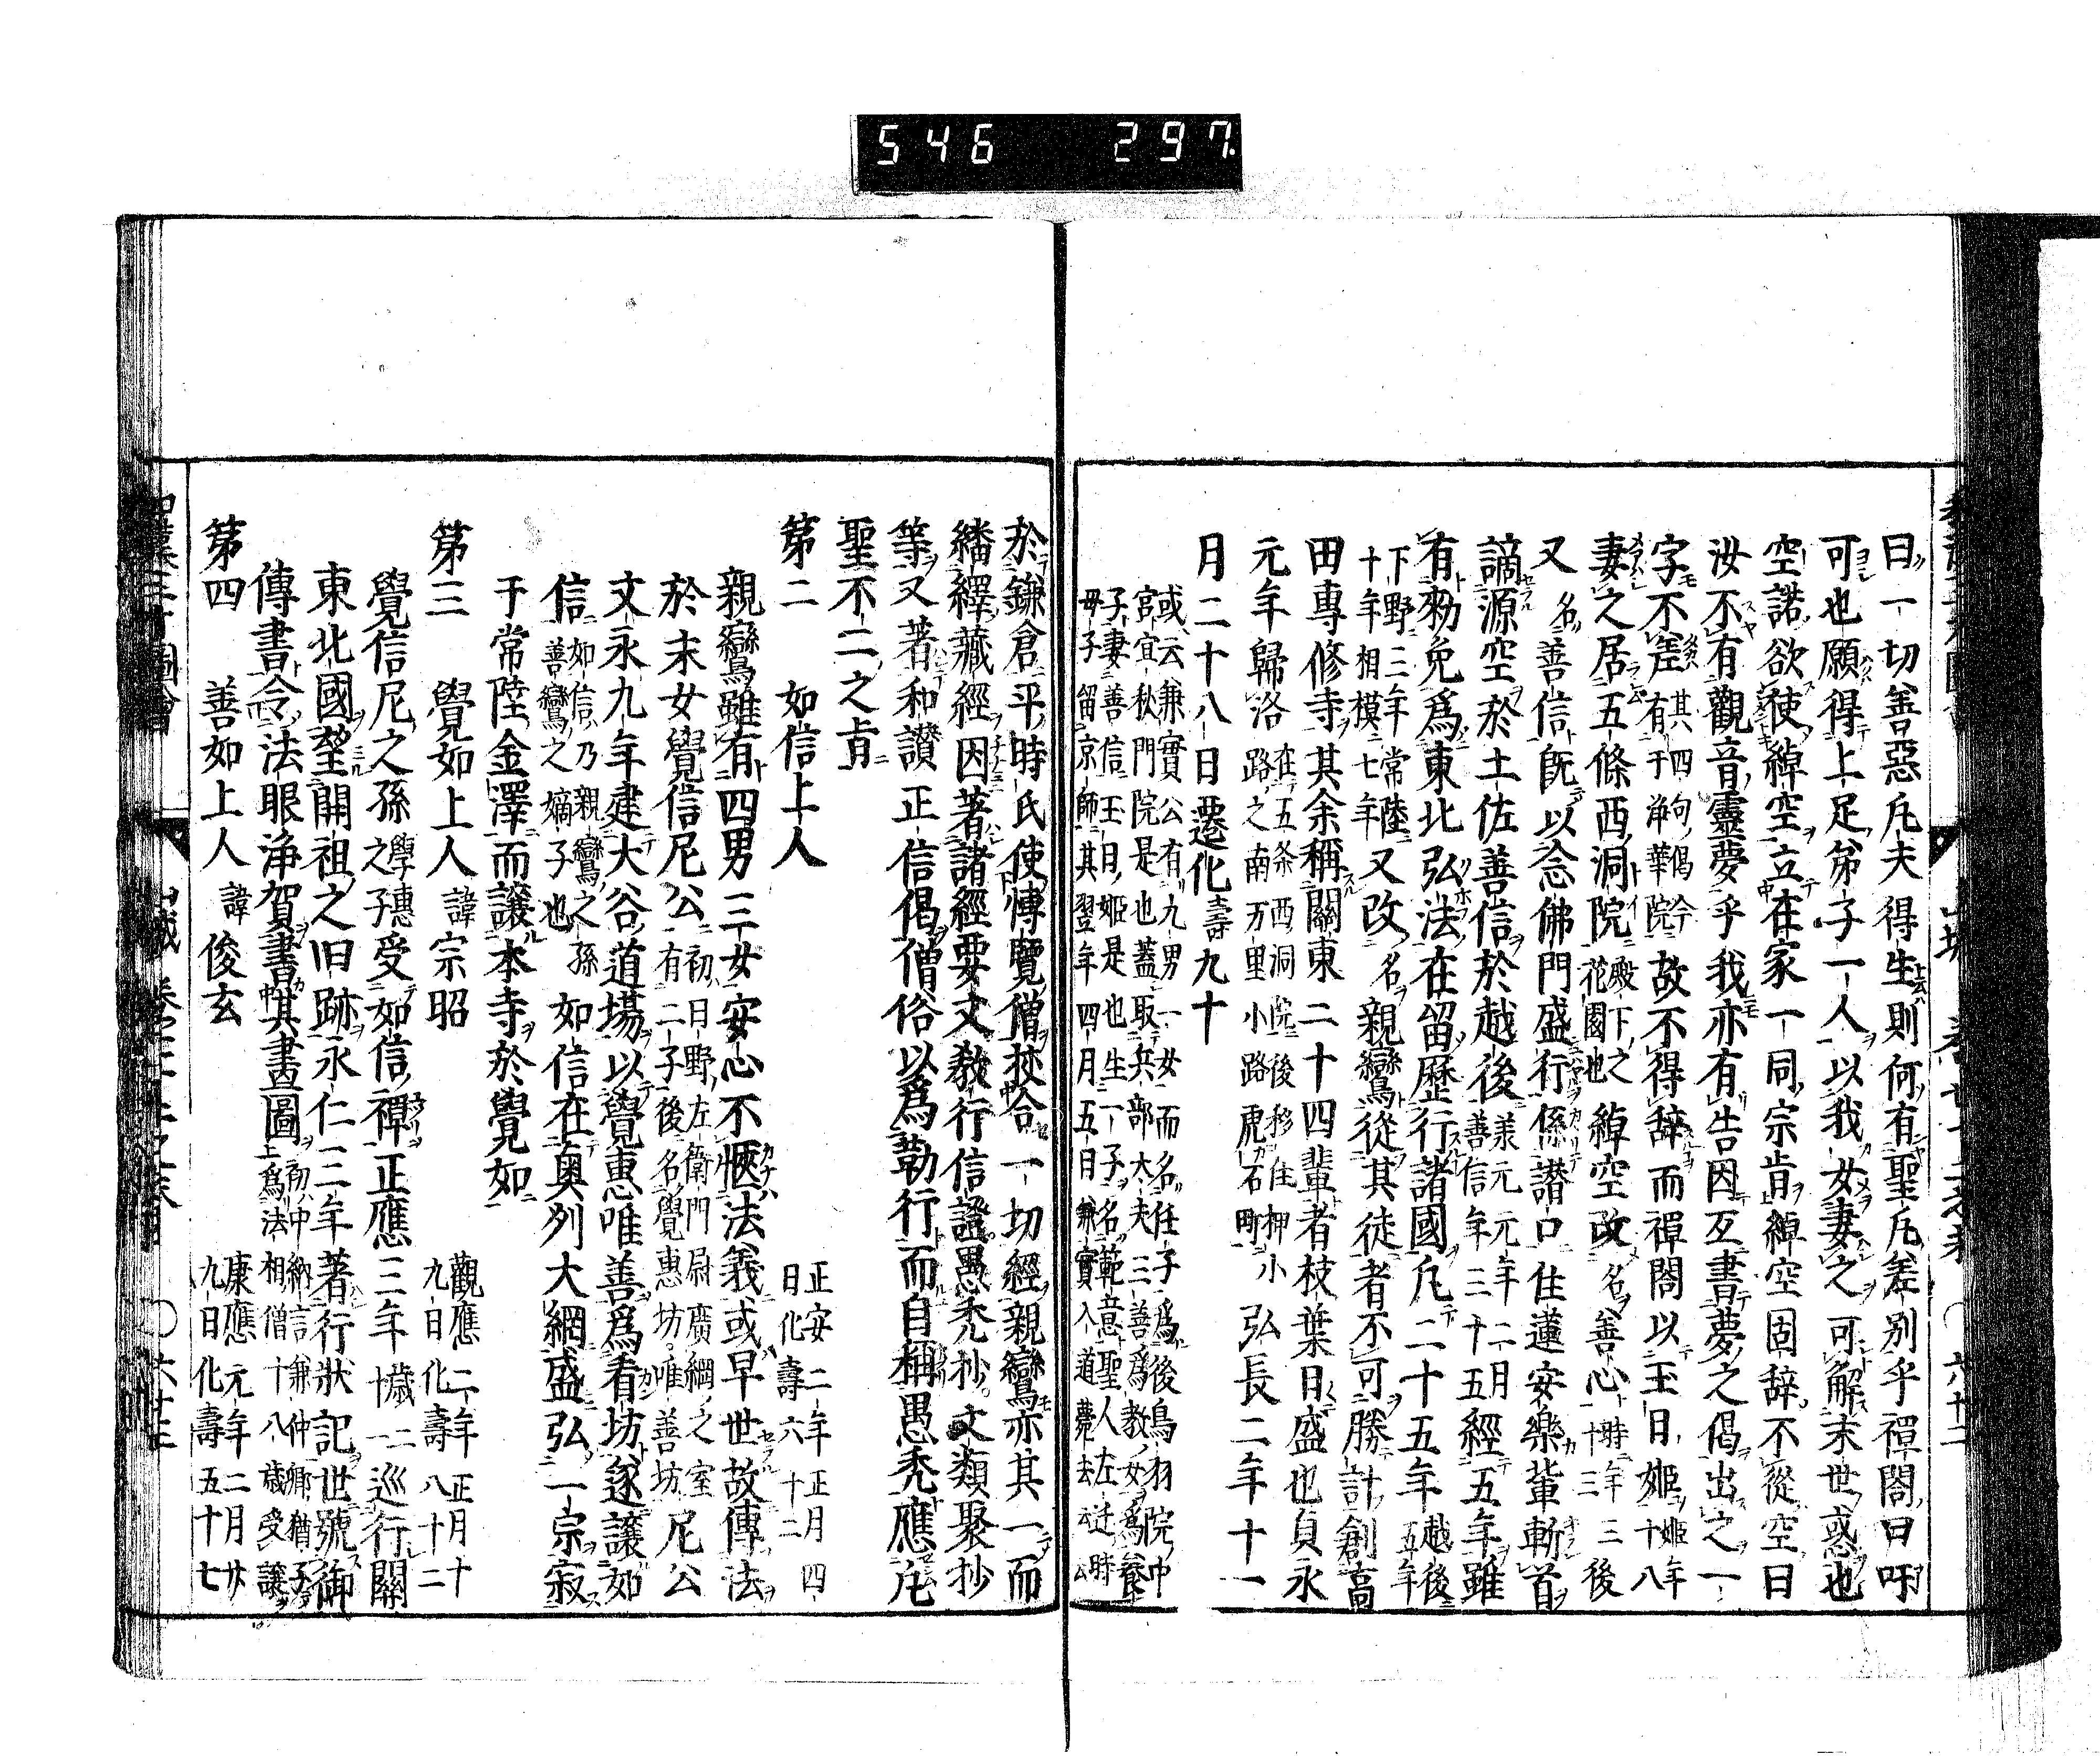 546 297
曰一切善惡凢夫得生則何有聖凢差別乎禪閤曰吁
可也願得上足弟子一人以我女妻之可解末世惑也
空諾欲使綽空立在家一同宗肯綽空固辞不從空曰
汝不有觀音靈夢乎我亦有告因互書夢之偈出之一
字不差其四句偈今有于淨華院故不得辞而禪閤以玉日姬姬年十八
妻之居五條西洞院殿下之花園也綽空改名善心時年三十三後
又名善信旣以念佛門盛行係譛口住蓮安樂軰斬首
謫源空於土佐善信於越後羕元元年二月善信年三十五經五年雖
有勑免爲東北弘法在留歷行諸國凢二十五年越後五年
下野三年常陸十年相模七年又改名親鸞從其徒者不可勝計創高
田專修寺其余稱關東二十四輩者枝葉日盛也貞永
元年歸洛在五条西洞院後移住押小路之南万里小路虎石町弘長二年十一
月二十八日遷化壽九十
或云兼實公有九男一女而名任子爲後鳥羽院中
宮宜秋門院是也蓋取兵部大夫三善爲教女爲養
子妻善信玉日姬是也生一子名範意聖人左迁時
母子留京師其翌年四月五日兼實入道薨去云公
於鎌倉平時氏使愽覽僧挍合一切經親鸞亦其一而
繙繹藏經因著諸經要文教行信證愚禿抄文類聚抄
等又著和讃正信偈僧俗以爲勤行而自稱愚禿應凢
聖不二之肯
第二 如信上人 正安二年正月四日化壽六十二
親鸞雖有四男三女安心不愜法義或早世故傳法
於末女覺信尼公初日野左衛門尉廣綱之室有二子後名覺惠坊唯善坊尼公
文永九年建大谷道塲以覺惠唯善爲看坊遂讓如
信如信乃親鸞之孫善鸞之嫡子也如信在奥列大網盛弘一宗寂
于常陸金澤而讓本寺於覺如
第三 覺如上人 諱宗昭 觀應二年正月十九日化壽八十二
覺信尼之孫覺惠之子受如信禪正應三年歲二十一巡行關
東北國瑩開祖之旧跡永仁三年著行狀記世號御
傳書令法眼淨賀書其畫圖初中納言兼仲卿猶子上爲法相僧十八歲受讓
第四 善如上人 諱俊玄 康應元年二月廿九日化壽五十七